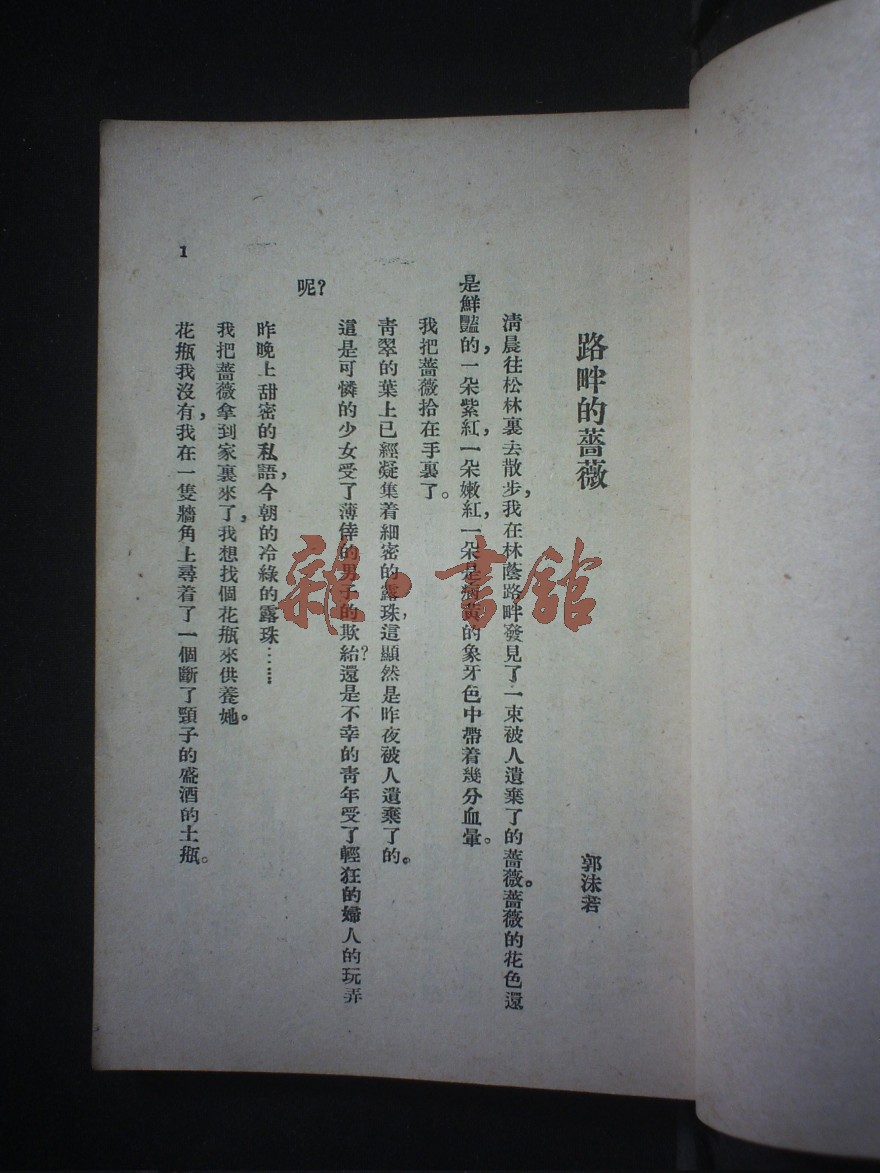 路畔的薔薇
郭沫若
淸晨往松林裏去散步，我在林蔭路畔發見了一束被人遺棄了的薔薇。薔薇的花色還
是鮮豔的，一朵紫紅，一朵嫩紅，一朵是病黃的象牙色中帶着幾分血暈。
我把薔薇拾在手裏了。
靑翠的葉上已經凝集着細密的露珠，這顯然是昨夜被人遺棄了的。
這是可憐的少女受了薄倖的男子的欺紿？還是不幸的靑年受了輕狂的婦人的玩弄
呢？
昨晚上甜密的私語，今朝的冷綠的露珠……
我把薔薇拿到家裏來了，我想找個花瓶來供養她。
花瓶我沒有，我在一隻牆角上尋着了一個斷了頸子的盛酒的土瓶。
1
雜·書館